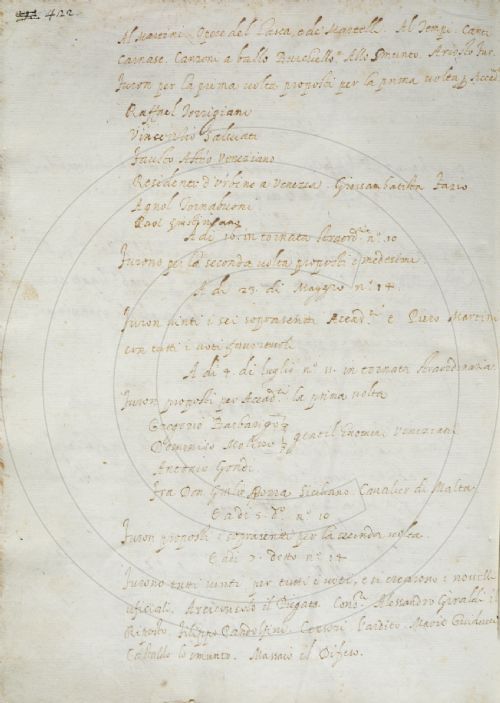 422
Al Martini. Opere del Lasca, e de Martelli. Al Tempi. Canti
Carnasc. Canzoni a ballo Burchiello. Allo Smunto.
Furon per la prima volta proposti per la prima volta p Accad
Raffael Torrigiani
Vincenzio Salviati
Fausto Veneziano
Residente d'Urbino a Venezia. Giovambatista Fazio
Agnol Tornabuoni
A di 10. in tornata straord.ria n.o 10
Furono per la seconda volta proposti i medesimi
A di 23. di Maggio n.o 14.
Furon vinti i sei soprascritti Accad.ci e Piero Martini
con tutti i voti favorevoli
A di 4. di luglio n.o 11. in tornata straordinaria.
Furon proposti per Accad.ci la prima volta
Gregorio Barbarigo
Domenico Molino gentil'huomini Veneziani
Antonio Gondi
Fra Don Giulio Siciliano. Cavalier di Malta
E a di 5. d.o n.o 10
Furon proposti i soprascritti per la seconda volta.
E adi 7. detto n.o 14
Furono tutti vinti per tutti i voti, e si crearono i novelli
uficiali. Arciconsolo il Cons.ri Alessandro Giraldi i
Riposto. Filippo Pandolfini. Censori l'ardito. Mario Guiducci
Castaldo lo smunto. Massaio il Difeso.